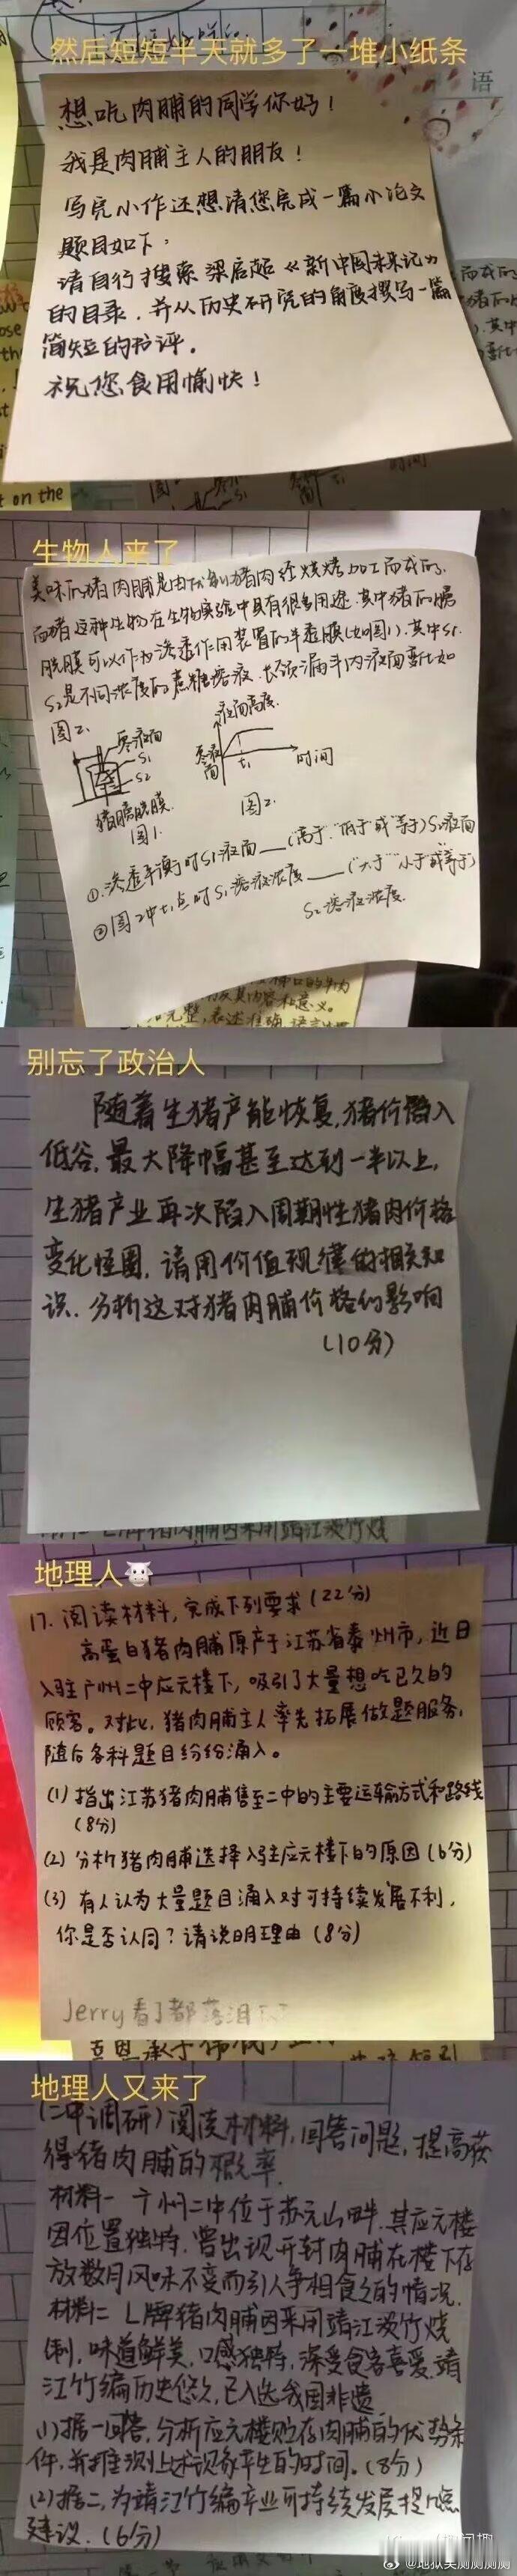 然后短短半天就多了一堆小纸条
语
想吃肉脯的同学你好！
我是肉脯主人的朋友！
写完小作还想请您完成一篇小论文
题目如下：
请自行搜索梁启超《新中国未来记》
的目录，并从历史研究的角度撰写一篇
简短的书评。
祝您食用愉快！
on the
时间
生物人来了
美味的猪肉脯是由优制猪肉经烧烤加工而成的，
而猪这种生物在生物实验中具有很多用途，其中猪的膀
胱膜可以作为渗透作用装置的半透膜（如图1），其中S1、
S2是不同浓度的蔗糖溶液，长颈漏斗内液面变化如
图2.
零液面
S1
S2
猪膀胱膜
图1.
液面高度
零液
面
t1
时间
图2.
①渗透平衡时S1液面__（“高于”“低于”或“等于”）S2液面
②图2中t1点时S1溶液浓度__（“大于”“小于”或“等于”）
S2溶液浓度.
别忘了政治人
随着生猪产能恢复,猪价陷入
低谷,最大降幅甚至达到一半以上,
生猪产业再次陷入周期性猪肉价格
变化怪圈,请用价值规律的相关知
识,分析这对猪肉脯价格的影响
（10分）
地理人🐮
17. 阅读材料，完成下列要求（22分）
高蛋白猪肉脯原产于江苏省泰州市，近日
入驻广州二中应元楼下，吸引了大量想吃已久的
顾客。对此，猪肉脯主人率先拓展做题服务，
随后各科题目纷纷涌入。
(1) 指出江苏猪肉脯售至二中的主要运输方式和路线
（8分）
(2) 分析猪肉脯选择入驻应元楼下的原因（6分）
(3) 有人认为大量题目涌入对可持续发展不利，
你是否认同？请说明理由（8分）
Jerry看了都落泪
地理人又来了
(二中调研) 阅读材料，回答问题，提高获
得猪肉脯的概率.
材料一 广州二中位于苏元山畔,其应元楼
因位置独特,曾出现开封肉脯在楼下存
放数月风味不变而引人争相食之的情况.
材料二 L牌猪肉脯因采用靖江淡竹烧
制,味道鲜美,口感独特,深受食客喜爱,靖
江竹编历史悠久,已入选我国非遗
(1)据一回答,分析应元楼贮存肉脯的优势条
件,并推测上述现象产生的时间.(8分)
(2)据二,为靖江竹编产业可持续发展提点
建议.(6分)
@地狱笑测测测测